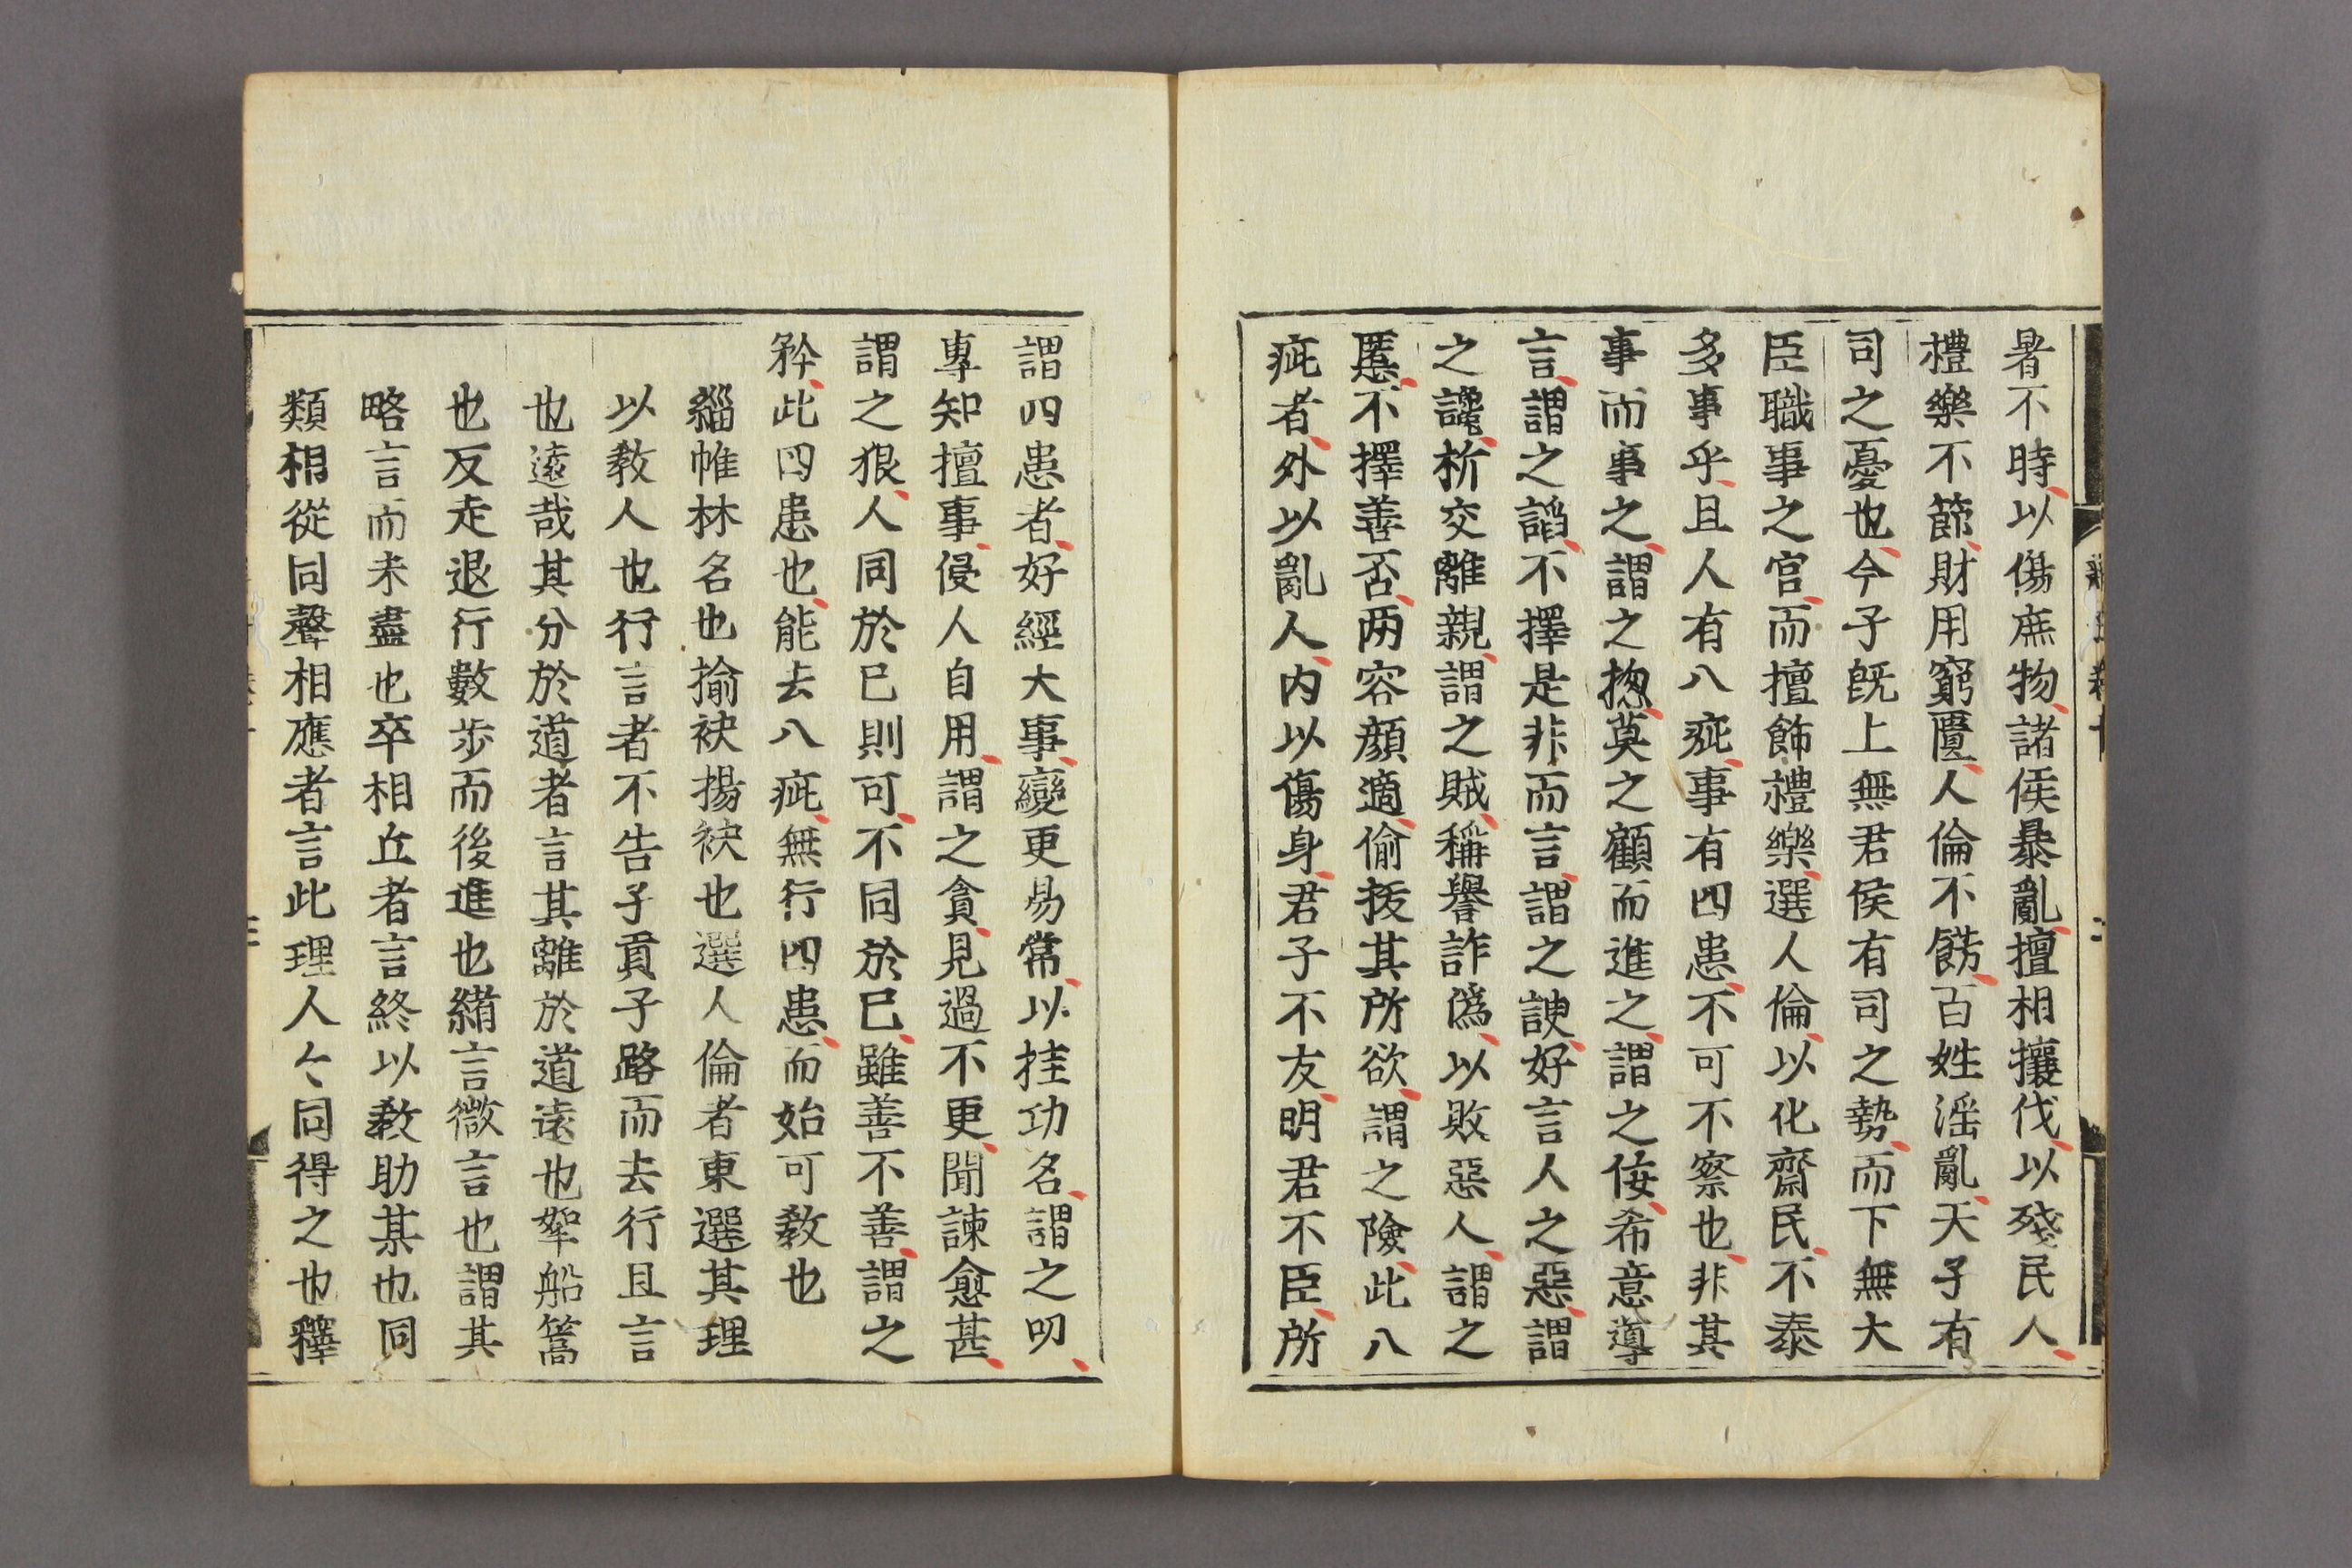 暑不時以傷庶物諸侯暴亂擅相攘伐以殘民人
禮樂不節財用窮匱人倫不飭百姓淫亂天子有
司之憂也今子旣上無君侯有司之勢而下無大
臣職事之官而擅飾禮樂選人倫以化齊民不泰
多事乎且人有八疵事有四患不可不察也非其
事而事之謂之揔莫之顧而進之謂之佞希意導
言謂之諂不擇是非而言謂之諛好言人之惡謂
之讒析交離親謂之賊稱譽詐僞以敗惡人謂之
慝不擇善否两容顔適偷拔其所欲謂之險此八
疵者外以亂人内以傷身君子不友明君不臣所
謂四患者好經大事變更易常以挂功名謂之叨
專知擅事侵人自用謂之貪見過不更聞諫愈甚
謂之狠人同於已則可不同於已雖善不善謂之
矜此四患也能去八疵無行四患而始可教也
緇帷林名也揄袂揚袂也選人倫者東選其理
以教人也行言者不告子貢子路而去行且言
也遠哉其分於道者言其離於道遠也挐船篙
也反走退行數步而後進也緒言微言也謂其
略言而未盡也卒相丘者言終以教助某也同
類相從同聲相應者言此理人々同得之也釋